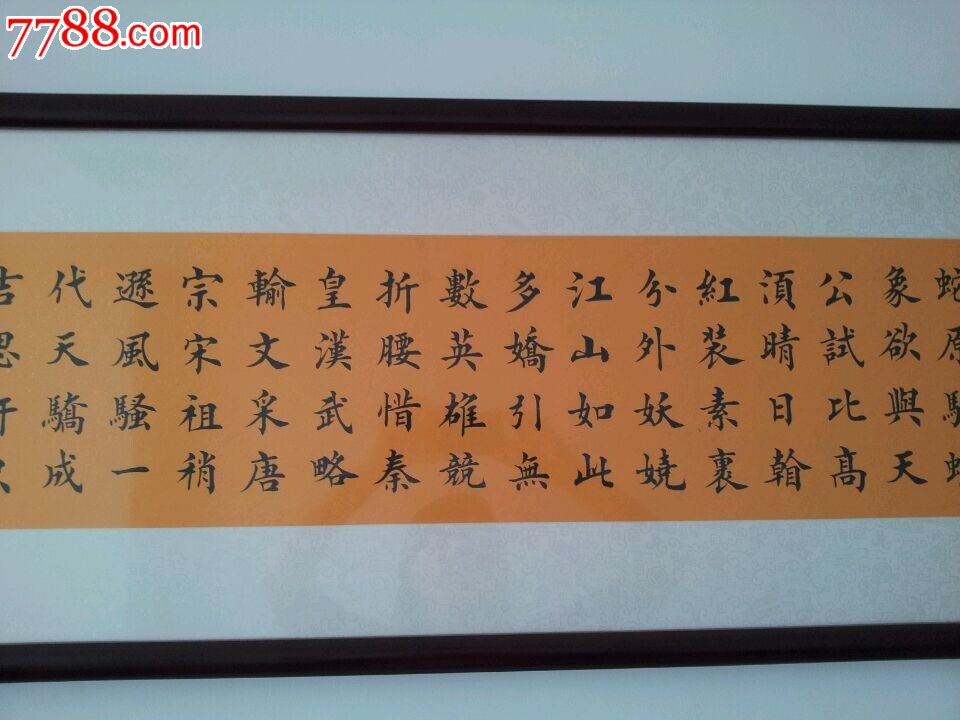 7788.com
蛇原
象欲與天
公試比高
湏晴日翰
紅裝素裹
分外妖嬈
江山如此
多嬌引無
數英雄競
折腰惜秦
皇漢武略
輸文采唐
宗宋祖稍
遜風騷一
代天驕成
吉思